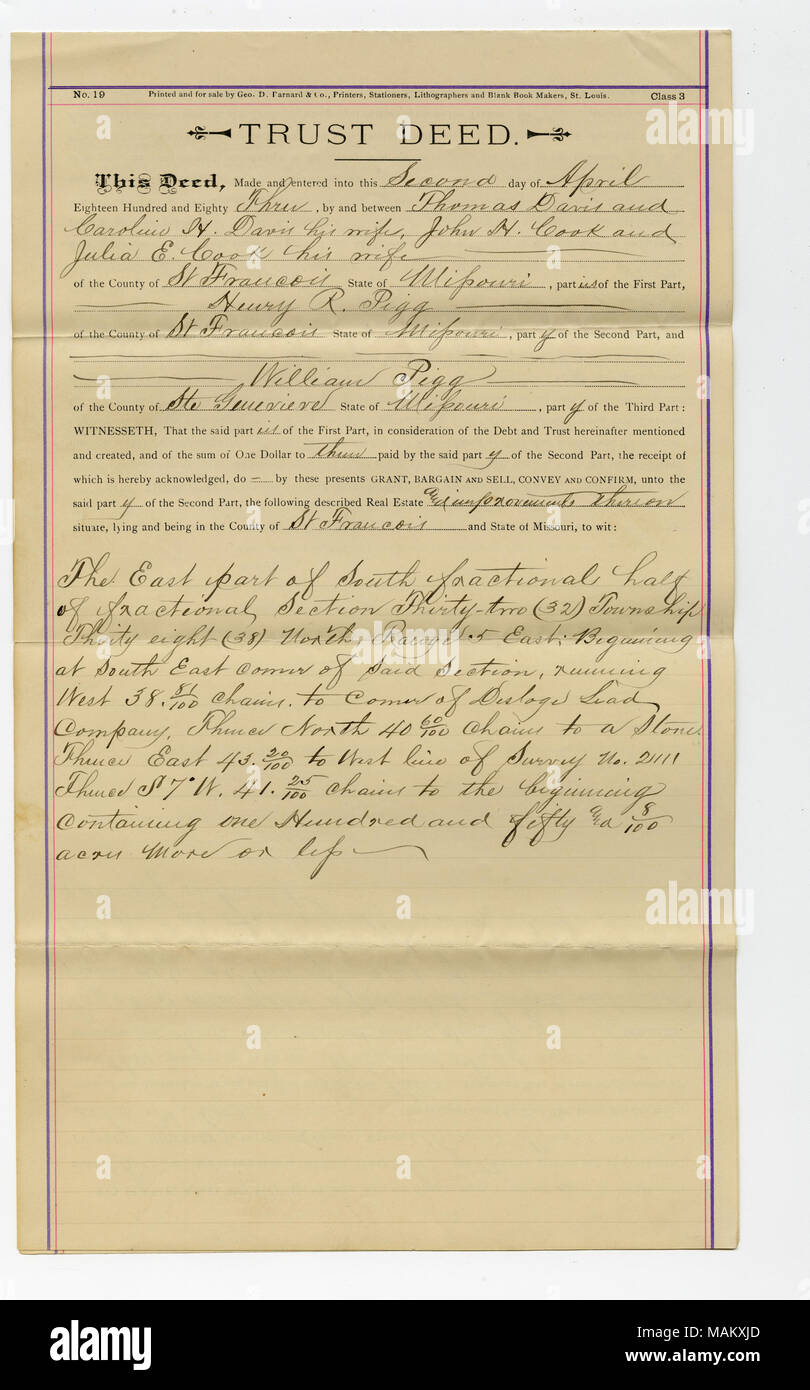 No. 19 Printed and for sale by Geo. D. Barnard & Co., Printers, Stationers, Lithographers and Blank Book Makers, St. Louis. Class 3
TRUST DEED.
This Deed, Made and entered into this Second day of April
Eighteen Hundred and Eighty Three, by and between Thomas Davis and
Caroline H. Davis his wife, John H. Cook and
Julia E. Cook his wife
of the County of St Francois State of Missouri, part ies of the First Part,
Henry R. Pigg
of the County of St Francois State of Missouri, part y of the Second Part, and
William Pigg
of the County of Ste Genevieve State of Missouri, part y of the Third Part:
WITNESSETH, That the said part ies of the First Part, in consideration of the Debt and Trust hereinafter mentioned
and created, and of the sum of One Dollar to them paid by the said part y of the Second Part, the receipt of
which is hereby acknowledged, do by these presents GRANT, BARGAIN AND SELL, CONVEY AND CONFIRM, unto the
said part y of the Second Part, the following described Real Estate and improvements thereon
situate, lying and being in the County of St Francois and State of Missouri, to wit:
The East part of South fractional half
of fractional Section Thirty-two (32) Township
Thirty eight (38) North Range 5 East. Beginning
at South East corner of Said Section, running
West 38. 81/100 chains. to Corner of Desloge Lead
Company, Thence North 40 60/100 chains to a Stone
Thence East 43. 20/100 to West line of Survey No. 2111
Thence S 7° W. 41. 25/100 chains to the beginning
Containing one Hundred and fifty and 8/100
acres More or less
alamy
a
Image ID: MAKXJD
www.alamy.com